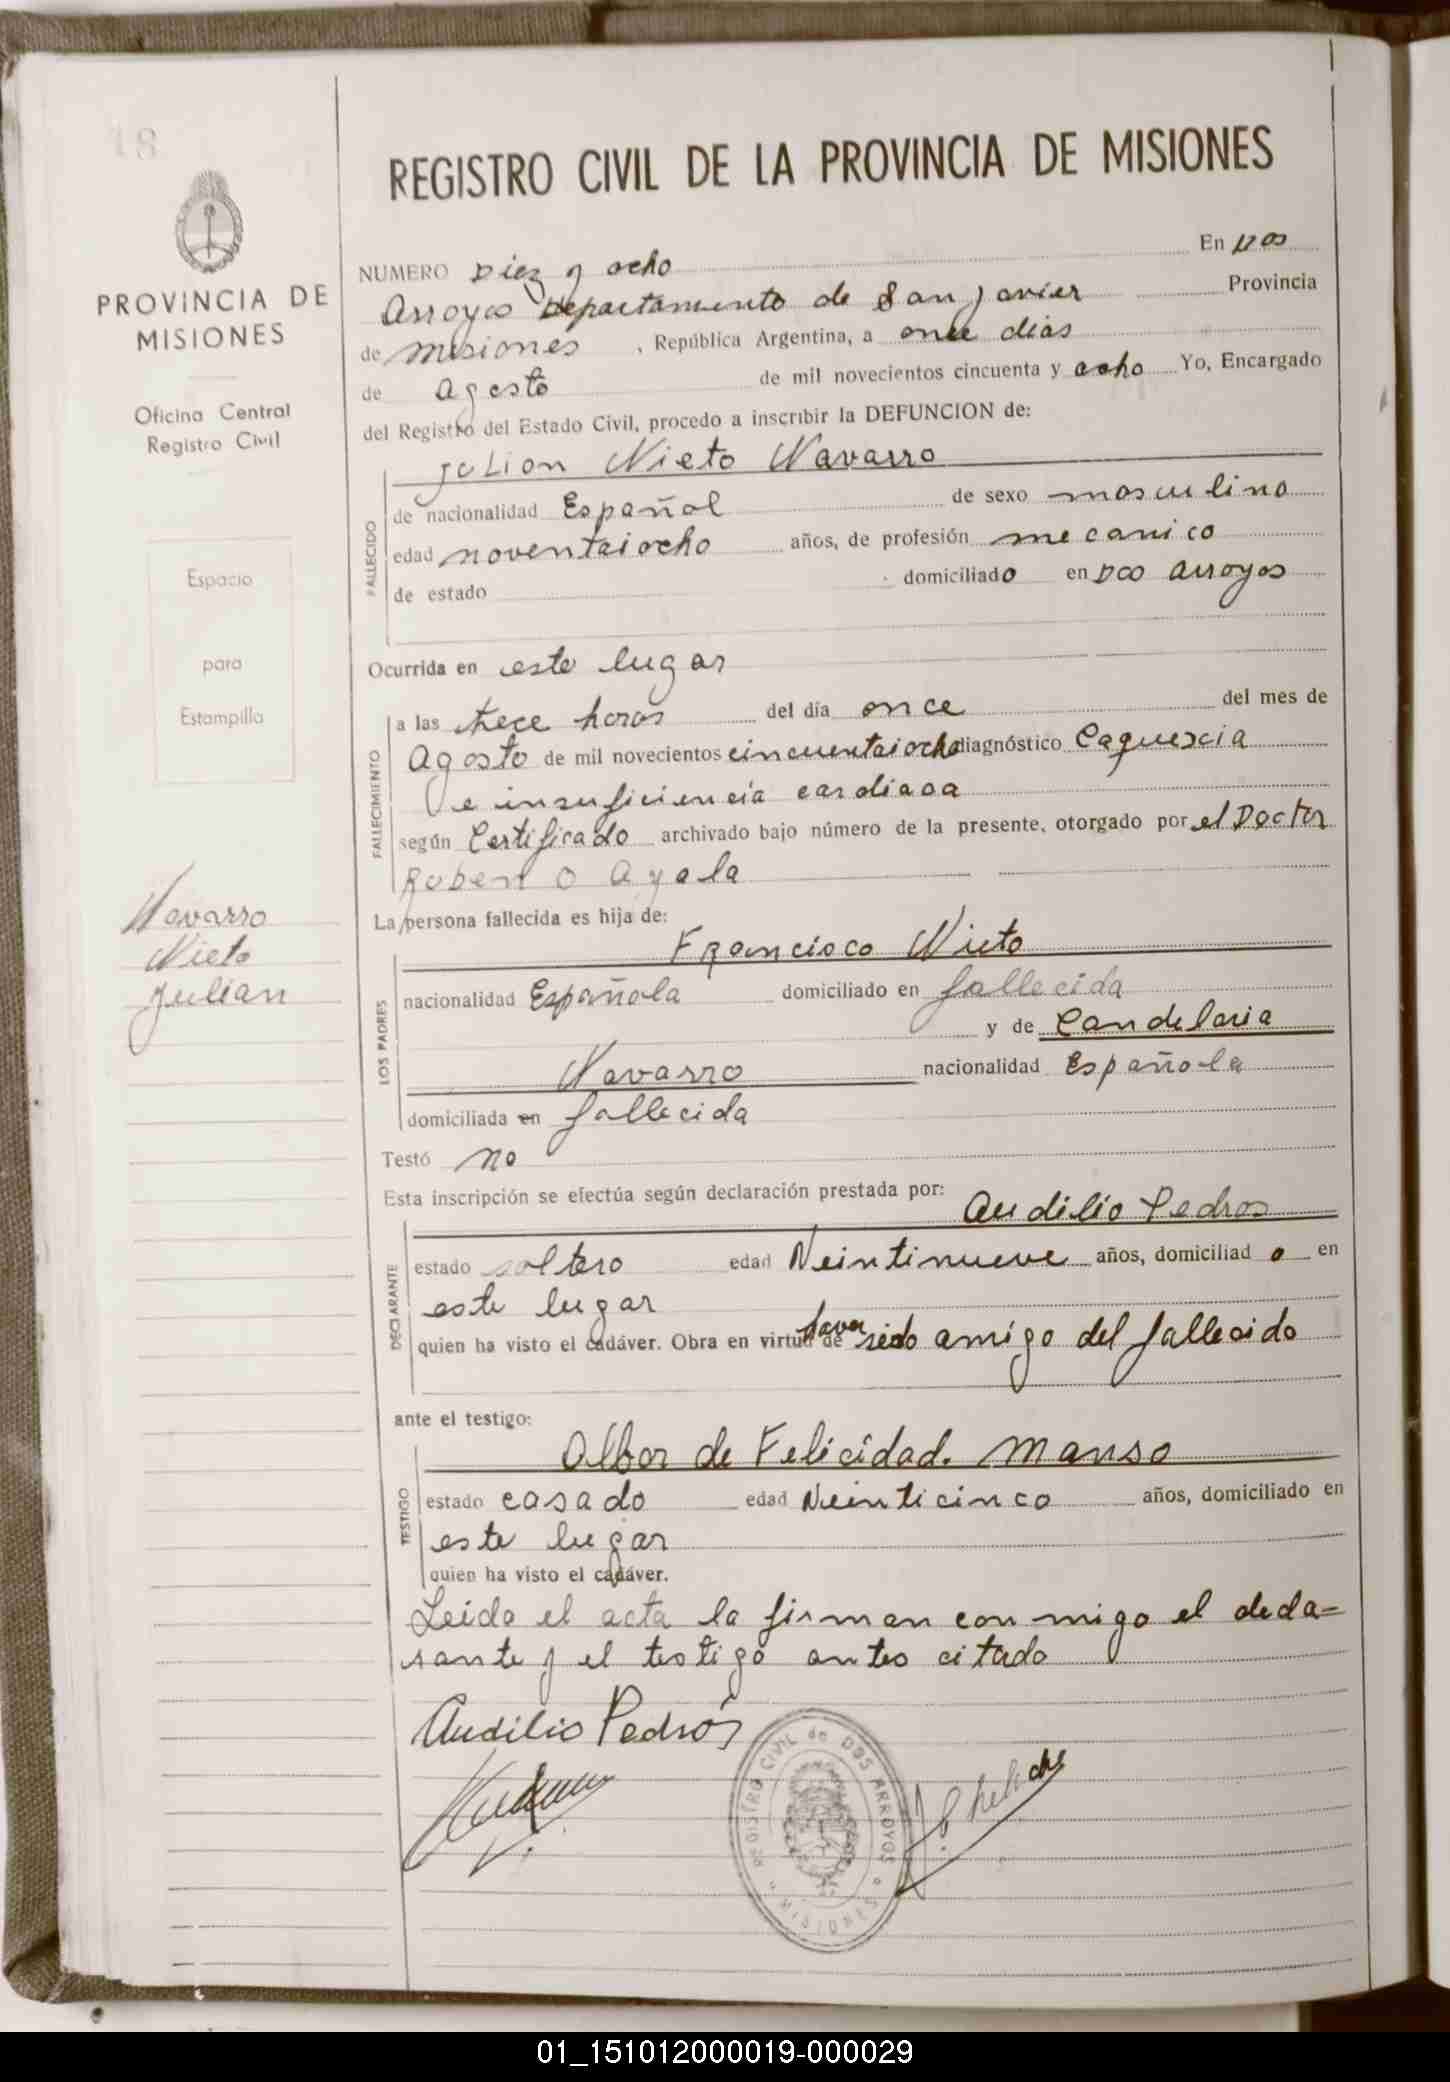 18
REGISTRO CIVIL DE LA PROVINCIA DE MISIONES
PROVINCIA DE
MISIONES
Oficina Central
Registro Civil
Espacio
para
Estampilla
Navarro
Nieto
Julian
NUMERO Diez y ocho En Dos
Arroyos Departamento de San Javier Provincia
de Misiones, República Argentina, a once días
de Agosto de mil novecientos cincuenta y ocho Yo, Encargado
del Registro del Estado Civil, procedo a inscribir la DEFUNCION de:
Julion Nieto Navarro
FALLECIDO
de nacionalidad Español de sexo masculino
edad noventaiocho años, de profesión mecanico
de estado domiciliado en Dos Arroyos
Ocurrida en este lugar
FALLECIMIENTO
a las trece horas del día once del mes de
Agosto de mil novecientos cincuentaiocho diagnóstico Caquexia
e insuficiencia cardiaca
según Certificado archivado bajo número de la presente, otorgado por el Doctor
Ruben O Ayala
La persona fallecida es hija de:
LOS PADRES
Francisco Nieto
nacionalidad Española domiciliado en fallecida
y de Candelaria
Navarro nacionalidad Española
domiciliada en fallecida
Testó no
Esta inscripción se efectúa según declaración prestada por:
Audilio Pedros
DECLARANTE
estado soltero edad Veintinueve años, domiciliado en
este lugar
quien ha visto el cadáver. Obra en virtud de haver sido amigo del fallecido
ante el testigo:
Albor de Felicidad. Manso
TESTIGO
estado casado edad Veinticinco años, domiciliado en
este lugar
quien ha visto el cadáver.
Leida el acta la firman con migo el decla=
rante y el testigo antes citado
Audilio Pedrós
REGISTRO CIVIL de DOS ARROYOS
MISIONES
01_151012000019-000029